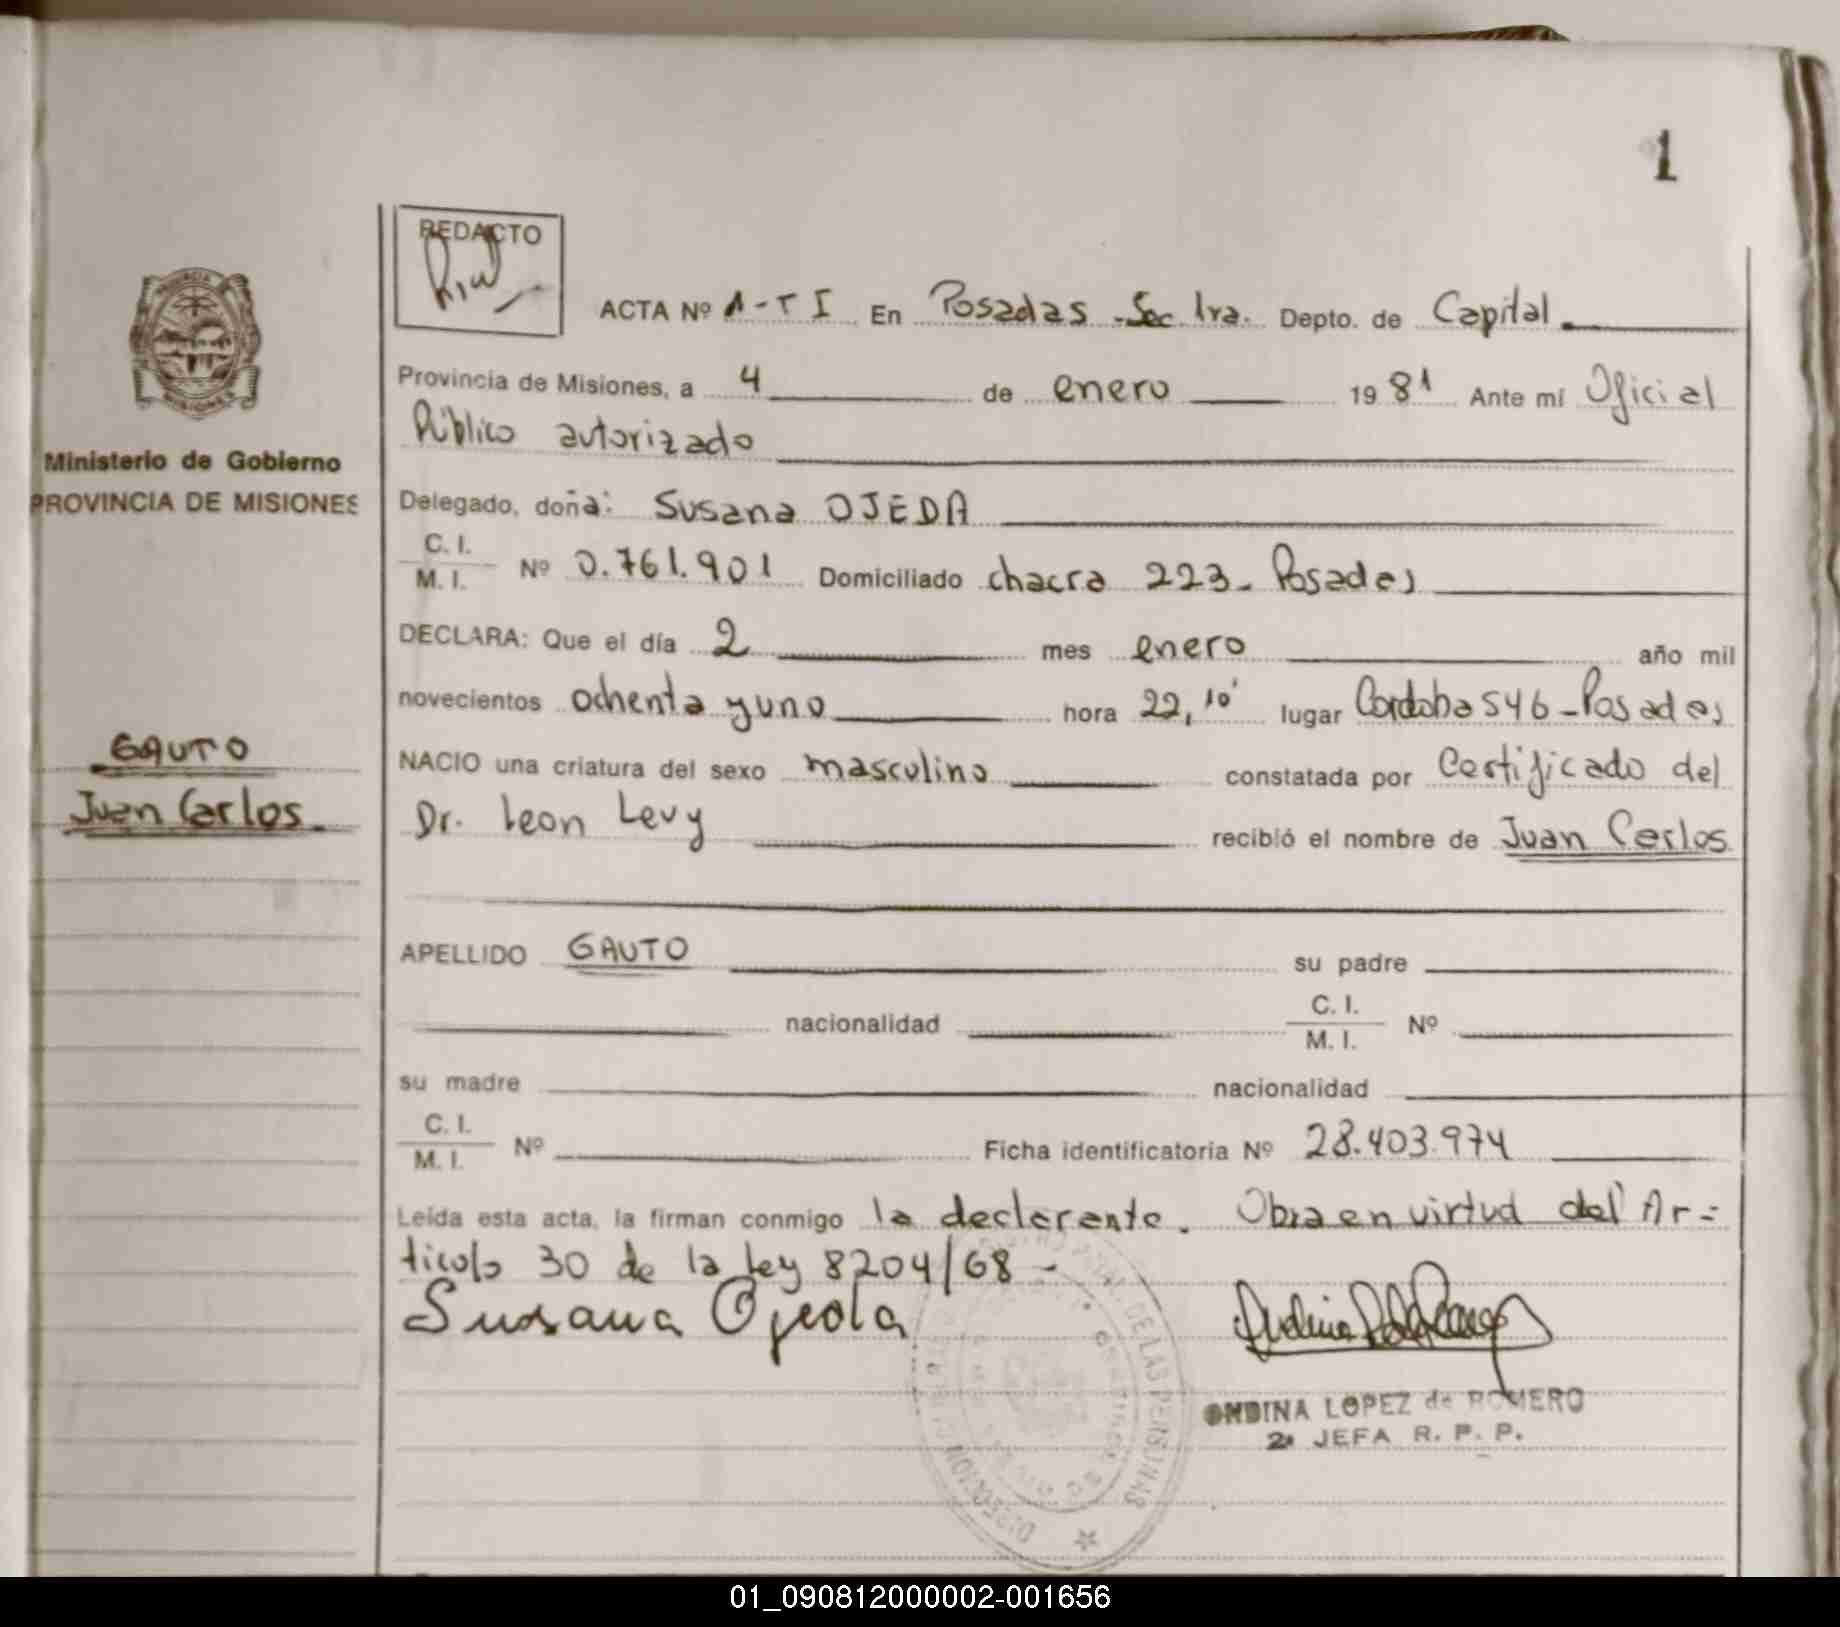 1
REDACTO
ACTA Nº 1-TI En Posadas -Sec 1ra. Depto. de Capital
Provincia de Misiones, a 4 de enero 1981 Ante mí Oficial
Público autorizado
Ministerio de Gobierno
PROVINCIA DE MISIONES
Delegado, doña: Susana OJEDA
C. I.
M. I. Nº 0.761.901 Domiciliado chacra 223- Posadas
DECLARA: Que el día 2 mes enero año mil
novecientos ochenta y uno hora 22,10' lugar Cordoba 546-Posadas
GAUTO
Juan Carlos.
NACIO una criatura del sexo masculino constatada por Certificado del
Dr. Leon Levy recibió el nombre de Juan Carlos
APELLIDO GAUTO su padre
nacionalidad C. I.
M. I. Nº
su madre nacionalidad
C. I.
M. I. Nº Ficha identificatoria Nº 28.403.974
Leída esta acta, la firman conmigo la declarante. Obra en virtud del Ar=
ticulo 30 de la ley 8204/68 -
Susana Ojeda
DE LAS PERSONAS
ONDINA LOPEZ de ROMERO
2ª JEFA R. P. P.
01_090812000002-001656